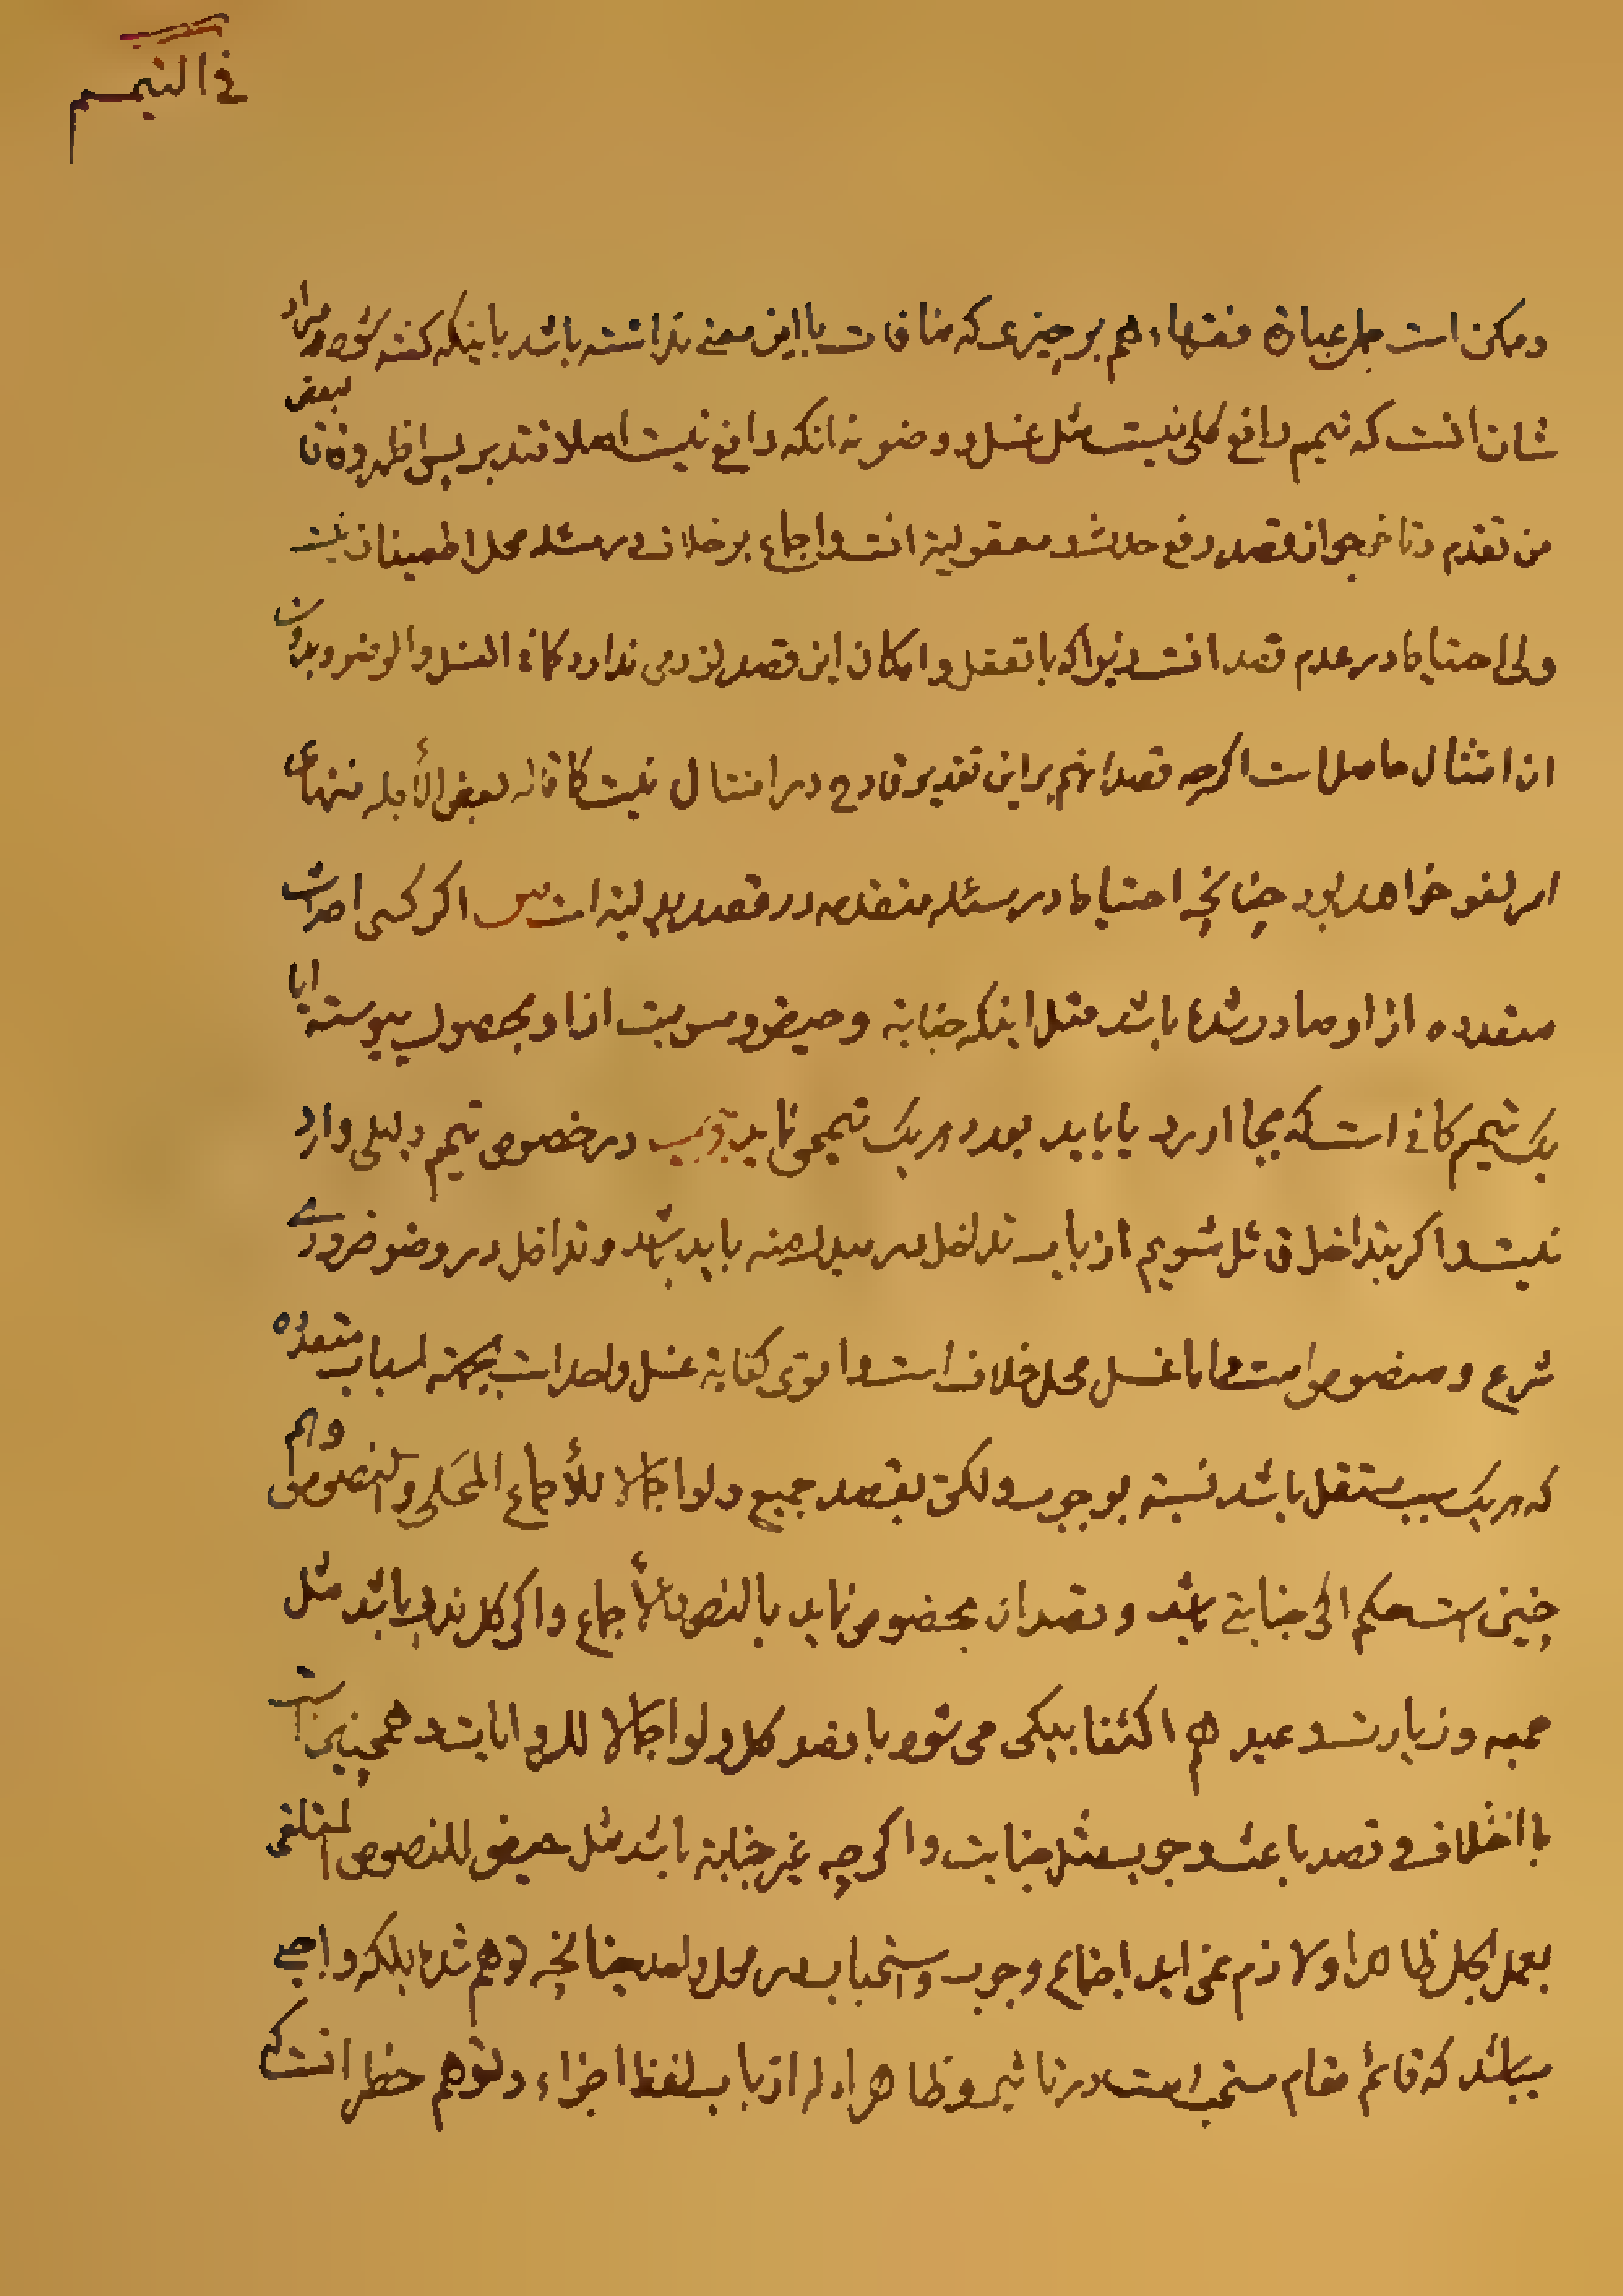 في التيمم
وممكن است حمل عبارة فقهاء هم بر چیزی که منافات با این معنی نداشته باشد باینکه گفته شود مراد
شان انست که تیمم رافع کلی نیست مثل غسل و وضو نه انکه رافع نیست اصلا فتدبر پس اظهر وفاقا لبعض
من تقدم و تاخر جواز قصد رفع حدث و معقولیة انست و اجماع بر خلاف در مسئله محل اطمینان نیست
ولی احتیاط در عدم قصد انست و نیز انکه با تعقل و امکان این قصد لزومی ندارد کما في الغسل والوضوء و بدون
ان امتثال حاصل است اکرچه قصد انهم بر این تقدیر قادح در امتثال نیست کما قاله بعض الأجلة منتهای
امر لغو خواهد بود چنانچه احتیاط در مسئله متقدمه در قصد بدلیة است س اکر کسی احداث
متعدده از او صادر شده باشد مثل اینکه جنابة و حیض و مس میت از او بحصول پیوسته ایا
یک تیمم کافی است که بجا اورد یا باید بعدد هر یک تیممی نماید در خصوص تیمم دلیلی وارد
نیست و اکر بتداخل قائل شویم از باب تداخل در مبدل منه باید باشد و تداخل در وضو ضروری
شرع و منصوص است و اما غسل محل خلاف است و اقوی کفایة غسل واحد است بجهة اسباب متعدده
که هر یک سبب مستقل باشد نسبة بوجوب ولکن بقصد جمیع ولو اجمالا للأجماع المحکی والنصوص و هم
چنین است حکم اکر جنابتی باشد و قصد ان بخصوص نماید بالنص والأجماع و اکر کل ندبی باشد مثل
جمعه و زیارت و عید هم اکتفا بیکی می شود با قصد کل ولو اجمالا للروایات و همچنین است
با اختلاف در قصد باعث وجوب مثل جنابت و اکرچه غیر جنابة باشد مثل حیض للنصوص المتلقی
بعمل الکل ظاهرا و لازم نمی اید اجتماع وجوب و استحباب در محل واحد چنانچه توهم شده بلکه واجبی
میباشد که قائم مقام مستحب است در تاثیر و ظاهر ادله از باب لفظ اجزاء و توهم حظر انست که